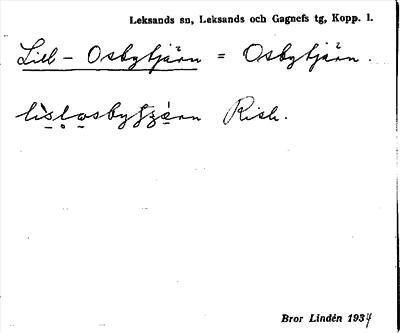 Leksands sn, Leksands och Gagnefs tg, Kopp. l.
Lill-Osbytjärn = Osbytjärn.
Rish.
Bror Lindén 1934